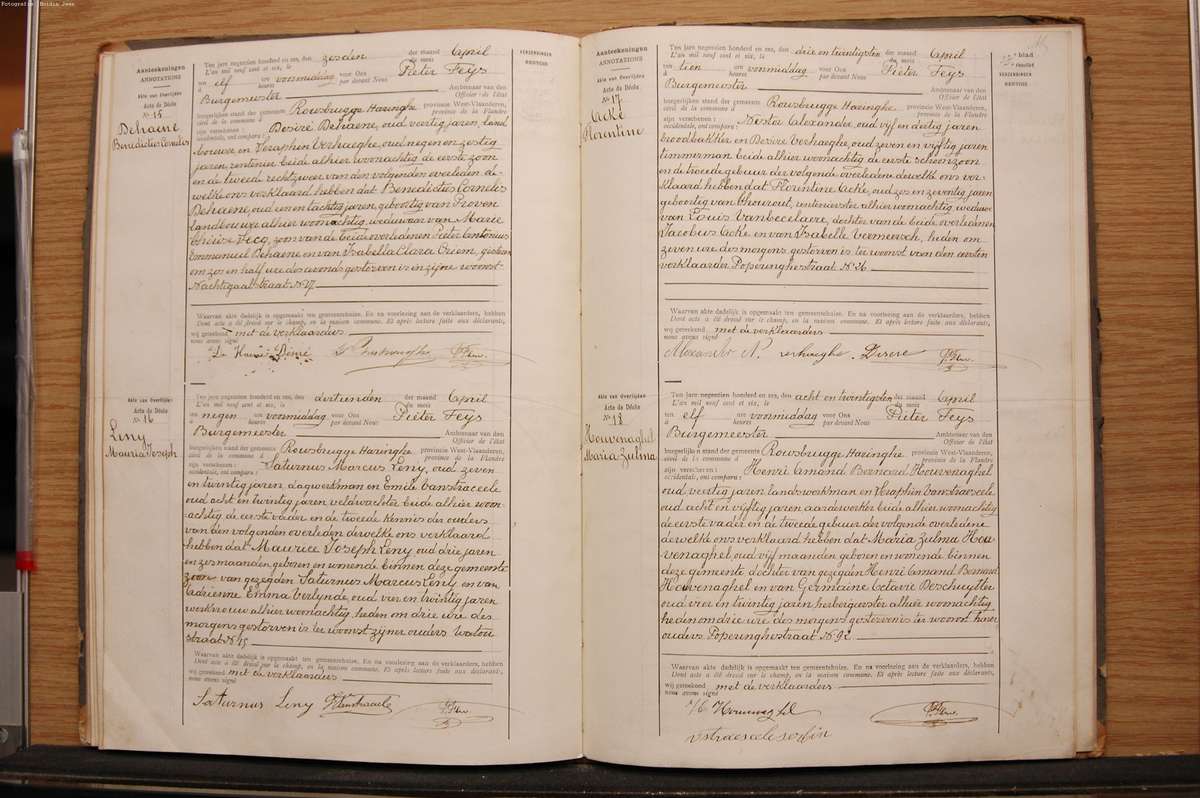 Fotografie: Boidin Jean
Aanteekeningen
ANNOTATIONS
Akte van Overlijden
Acte de Décès
№ 15
Dehaene
Benedictus Cornelis
Ten jare negentien honderd en zes, den zesden der maand April
L'an mil neuf cent et six, le du mois
ten elf ure voormiddag voor Ons Pieter Feys
à heures par devant Nous
Burgemeester Ambtenaar van den
Officier de l'état
burgerlijken stand der gemeente Rousbrugge Haringhe provincie West-Vlaanderen,
civil de la commune à province de la Flandre
zijn verschenen: Desiré Dehaene, oud veertig jaren, land
occidentale, ont comparu:
bouwer en Seraphin Verhaeghe, oud negen en zestig
jaren, rentenier beide alhier woonachtig de eerste zoon
en de tweede rechtzweer van den volgenden overleden de-
welke ons verklaard hebben dat Benedictus Cornelis
Dehaene, oud een en tachtig jaren, geboortig van Proven
landbouwer alhier woonachtig, weduwaar van Marie
Thérèse Fecq, zoon van de beide overledenen Pieter Antonius
Emmanuel Dehaene en van Isabella Clara Oriem, gisteren
om zes en half ure des avonds gestorven is in zijne woonst
Nachtegaalstraat N. 17.
Waarvan akte dadelijk is opgemaakt ten gemeentehuize. En na voorlezing aan de verklaarders, hebben
Dont acte a été dressé sur le champ, en la maison commune. Et après lecture faite aux déclarants,
wij geteekend met de verklaarders
nous avons signé
Akte van Overlijden
Acte de Décès
№ 16
Leny
Mauria Joseph
Ten jare negentien honderd en zes, den dertienden der maand April
L'an mil neuf cent et six, le du mois
ten negen ure voormiddag voor Ons Pieter Feys
à heures par devant Nous
Burgemeester Ambtenaar van den
Officier de l'état
burgerlijken stand der gemeente Rousbrugge Haringhe provincie West-Vlaanderen,
civil de la commune à province de la Flandre
zijn verschenen: Saturnus Marcus Leny, oud zeven
occidentale, ont comparu:
en twintig jaren, dagwerkman en Emile Vanstraceele
oud acht en twintig jaren veldwachter beide alhier woon-
achtig de eerste vader en de tweede kennis der ouders
van den volgenden overleden dewelke ons verklaard
hebben dat Maurice Joseph Leny oud drie jaren
en zes maanden, geboren en wonende binnen deze gemeente
zoon van gezegden Saturnus Marcus Leny en van
Adrienne Emma Verlynde, oud vier en twintig jaren
werkvrouw alhier woonachtig, heden om drie ure des
morgens gestorven is ter woonst zijner ouders Watou
straat N. 15.
Waarvan akte dadelijk is opgemaakt ten gemeentehuize. En na voorlezing aan de verklaarders, hebben
Dont acte a été dressé sur le champ, en la maison commune. Et après lecture faite aux déclarants,
wij geteekend met de verklaarders
nous avons signé
Saturnus Leny
VERZENDINGEN
RENVOIS
Aanteekeningen
ANNOTATIONS
Akte van Overlijden
Acte de Décès
№ 17
Acke
Florentine
Ten jare negentien honderd en zes, den drie en twintigsten der maand April
L'an mil neuf cent et six, le du mois
ten tien ure voormiddag voor Ons Pieter Feys
à heures par devant Nous
Burgemeester Ambtenaar van den
Officier de l'état
burgerlijken stand der gemeente Rousbrugge Haringhe provincie West-Vlaanderen,
civil de la commune à province de la Flandre
zijn verschenen: Nestor Alexander, oud vijf en dertig jaren
occidentale, ont comparu:
broodbakker en Desire Verhaeghe, oud zeven en vijftig jaren
timmerman beide alhier woonachtig de eerste schoonzoon
en de tweede gebuur der volgende overledene dewelke ons ver-
klaard hebben dat Florentine Acke, oud zes en zeventig jaren
geboortig van Thourout, rentenierster alhier woonachtig, weduwe
van Louis Vanbecelaere, dochter van de beide overledenen
Jacobus Acke en van Isabelle Vermeersch, heden om
zeven ure des morgens gestorven is ter woonst van den eersten
verklaarder, Poperinghestraat N. 36.
Waarvan akte dadelijk is opgemaakt ten gemeentehuize. En na voorlezing aan de verklaarders, hebben
Dont acte a été dressé sur le champ, en la maison commune. Et après lecture faite aux déclarants,
wij geteekend met de verklaarders
nous avons signé
Alexander N. Verhaeghe Disere
Akte van Overlijden
Acte de Décès
№ 18
Houvenaghel
Maria Zulma
Ten jare negentien honderd en zes, den acht en twintigsten der maand April
L'an mil neuf cent et six, le du mois
ten elf ure voormiddag voor Ons Pieter Feys
à heures par devant Nous
Burgemeester Ambtenaar van den
Officier de l'état
burgerlijken stand der gemeente Rousbrugge Haringhe provincie West-Vlaanderen,
civil de la commune à province de la Flandre
zijn verschenen: Henri Amand Bernard Houvenaghel
occidentale, ont comparu:
oud veertig jaren landswerkman en Seraphin Vanstraeseele
oud acht en vijftig jaren aardewerker beide alhier woonachtig
de eerste vader en de tweede gebuur der volgende overledene
dewelke ons verklaard hebben dat Maria Zulma Hou
venaghel, oud vijf maanden geboren en wonende binnen
deze gemeente dochter van gezegden Henri Amand Bernard
Houvenaghel en van Germaine Octavie Deschuytter
oud vier en twintig jaren herbergierster alhier woonachtig
heden om drie ure des morgens gestorven is ter woonst harer
ouders Poperinghestraat N. 92.
Waarvan akte dadelijk is opgemaakt ten gemeentehuize. En na voorlezing aan de verklaarders, hebben
Dont acte a été dressé sur le champ, en la maison commune. Et après lecture faite aux déclarants,
wij geteekend met de verklaarders
nous avons signé
blad
feuillet
VERZENDINGEN
RENVOIS